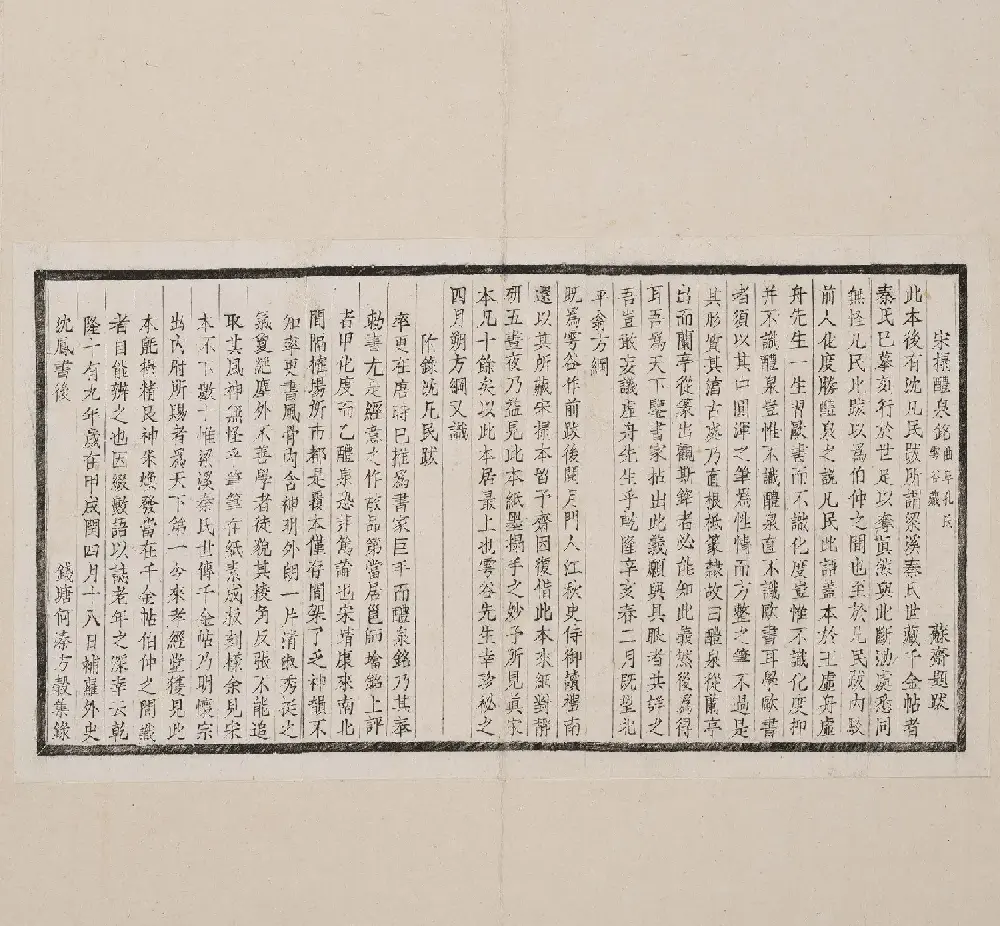 宋搨醴泉銘 曲阜孔氏雩谷藏 蘇齋題跋
此本後有沈凡民跋所謂梁溪秦氏世藏千金帖者
秦氏已摹刻行於世足以奪真然與此斷泐處悉同
無怪凡民此跋以爲伯仲之間也至於凡民跋內駁
前人化度勝醴泉之說凡民此語蓋本於王虛舟虛
舟先生一生習歐書而不識化度豈惟不識化度抑
并不識醴泉豈惟不識醴泉直不識歐書耳學歐書
者須以其中圓渾之筆爲性情而方整之筆不過是
其形質其淳古處乃直根柢篆隸故曰醴泉從蘭亭
出而蘭亭從篆出觀斯銘者必能知此義然後爲得
耳吾爲天下鑒書家拈出此義願與具眼者共詳之
吾豈敢妄議虛舟先生乎乾隆辛亥春二月既望北
平翁方綱
既爲雩谷作前跋後閱月門人江秋史侍御讀禮南
還以其所藏宋搨本留予齋因復借此本來細對精
研五晝夜乃益見此本紙墨搨手之妙予所見真宋
本凡十餘矣以此本居最上也雩谷先生幸珍秘之
四月朔方綱又識
附錄沈凡民跋
率更在唐時已推爲書家巨手而醴泉銘乃其奉
勅書尤是經意之作故品第當居邕師塔銘上評
者甲化度而乙醴泉恐非篤論也宋靖康來南北
間隔榷場所市都是覆本僅有間架了乏神韻不
知率更書風骨內含神明外朗一片清剛秀之
氣夐絕塵外不善學者徒貌其稜角反張不能追
取其風神無怪乎筆筆在紙素成板刻樣余見宋
本不下數十惟梁溪秦氏世傳千金帖乃明懷宗
出內府所賜者爲天下第一今來孝經堂獲見此
本能精良神采煥發當在千金帖伯仲之間識
者自能辨之也因綴數語以誌老年之深幸云乾
隆十有九年歲在甲戌閏四月十八日補蘿外史
沈鳳書後 錢塘何溱方穀集錄